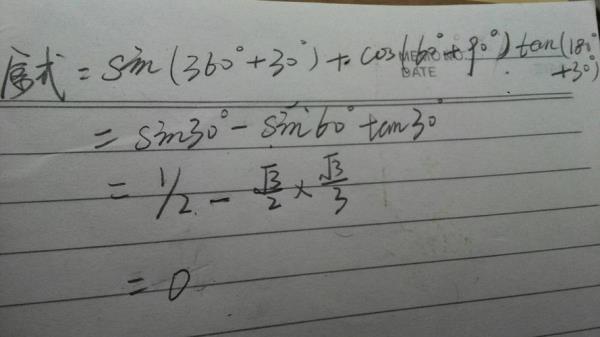 原式 = sin(360°+30°) + cos(60°+90°) tan(180°
+30°)
MEMO NO.
DATE
= sin30° - sin60° tan30°
= 1/2 - √3/2 × √3/3
= 0